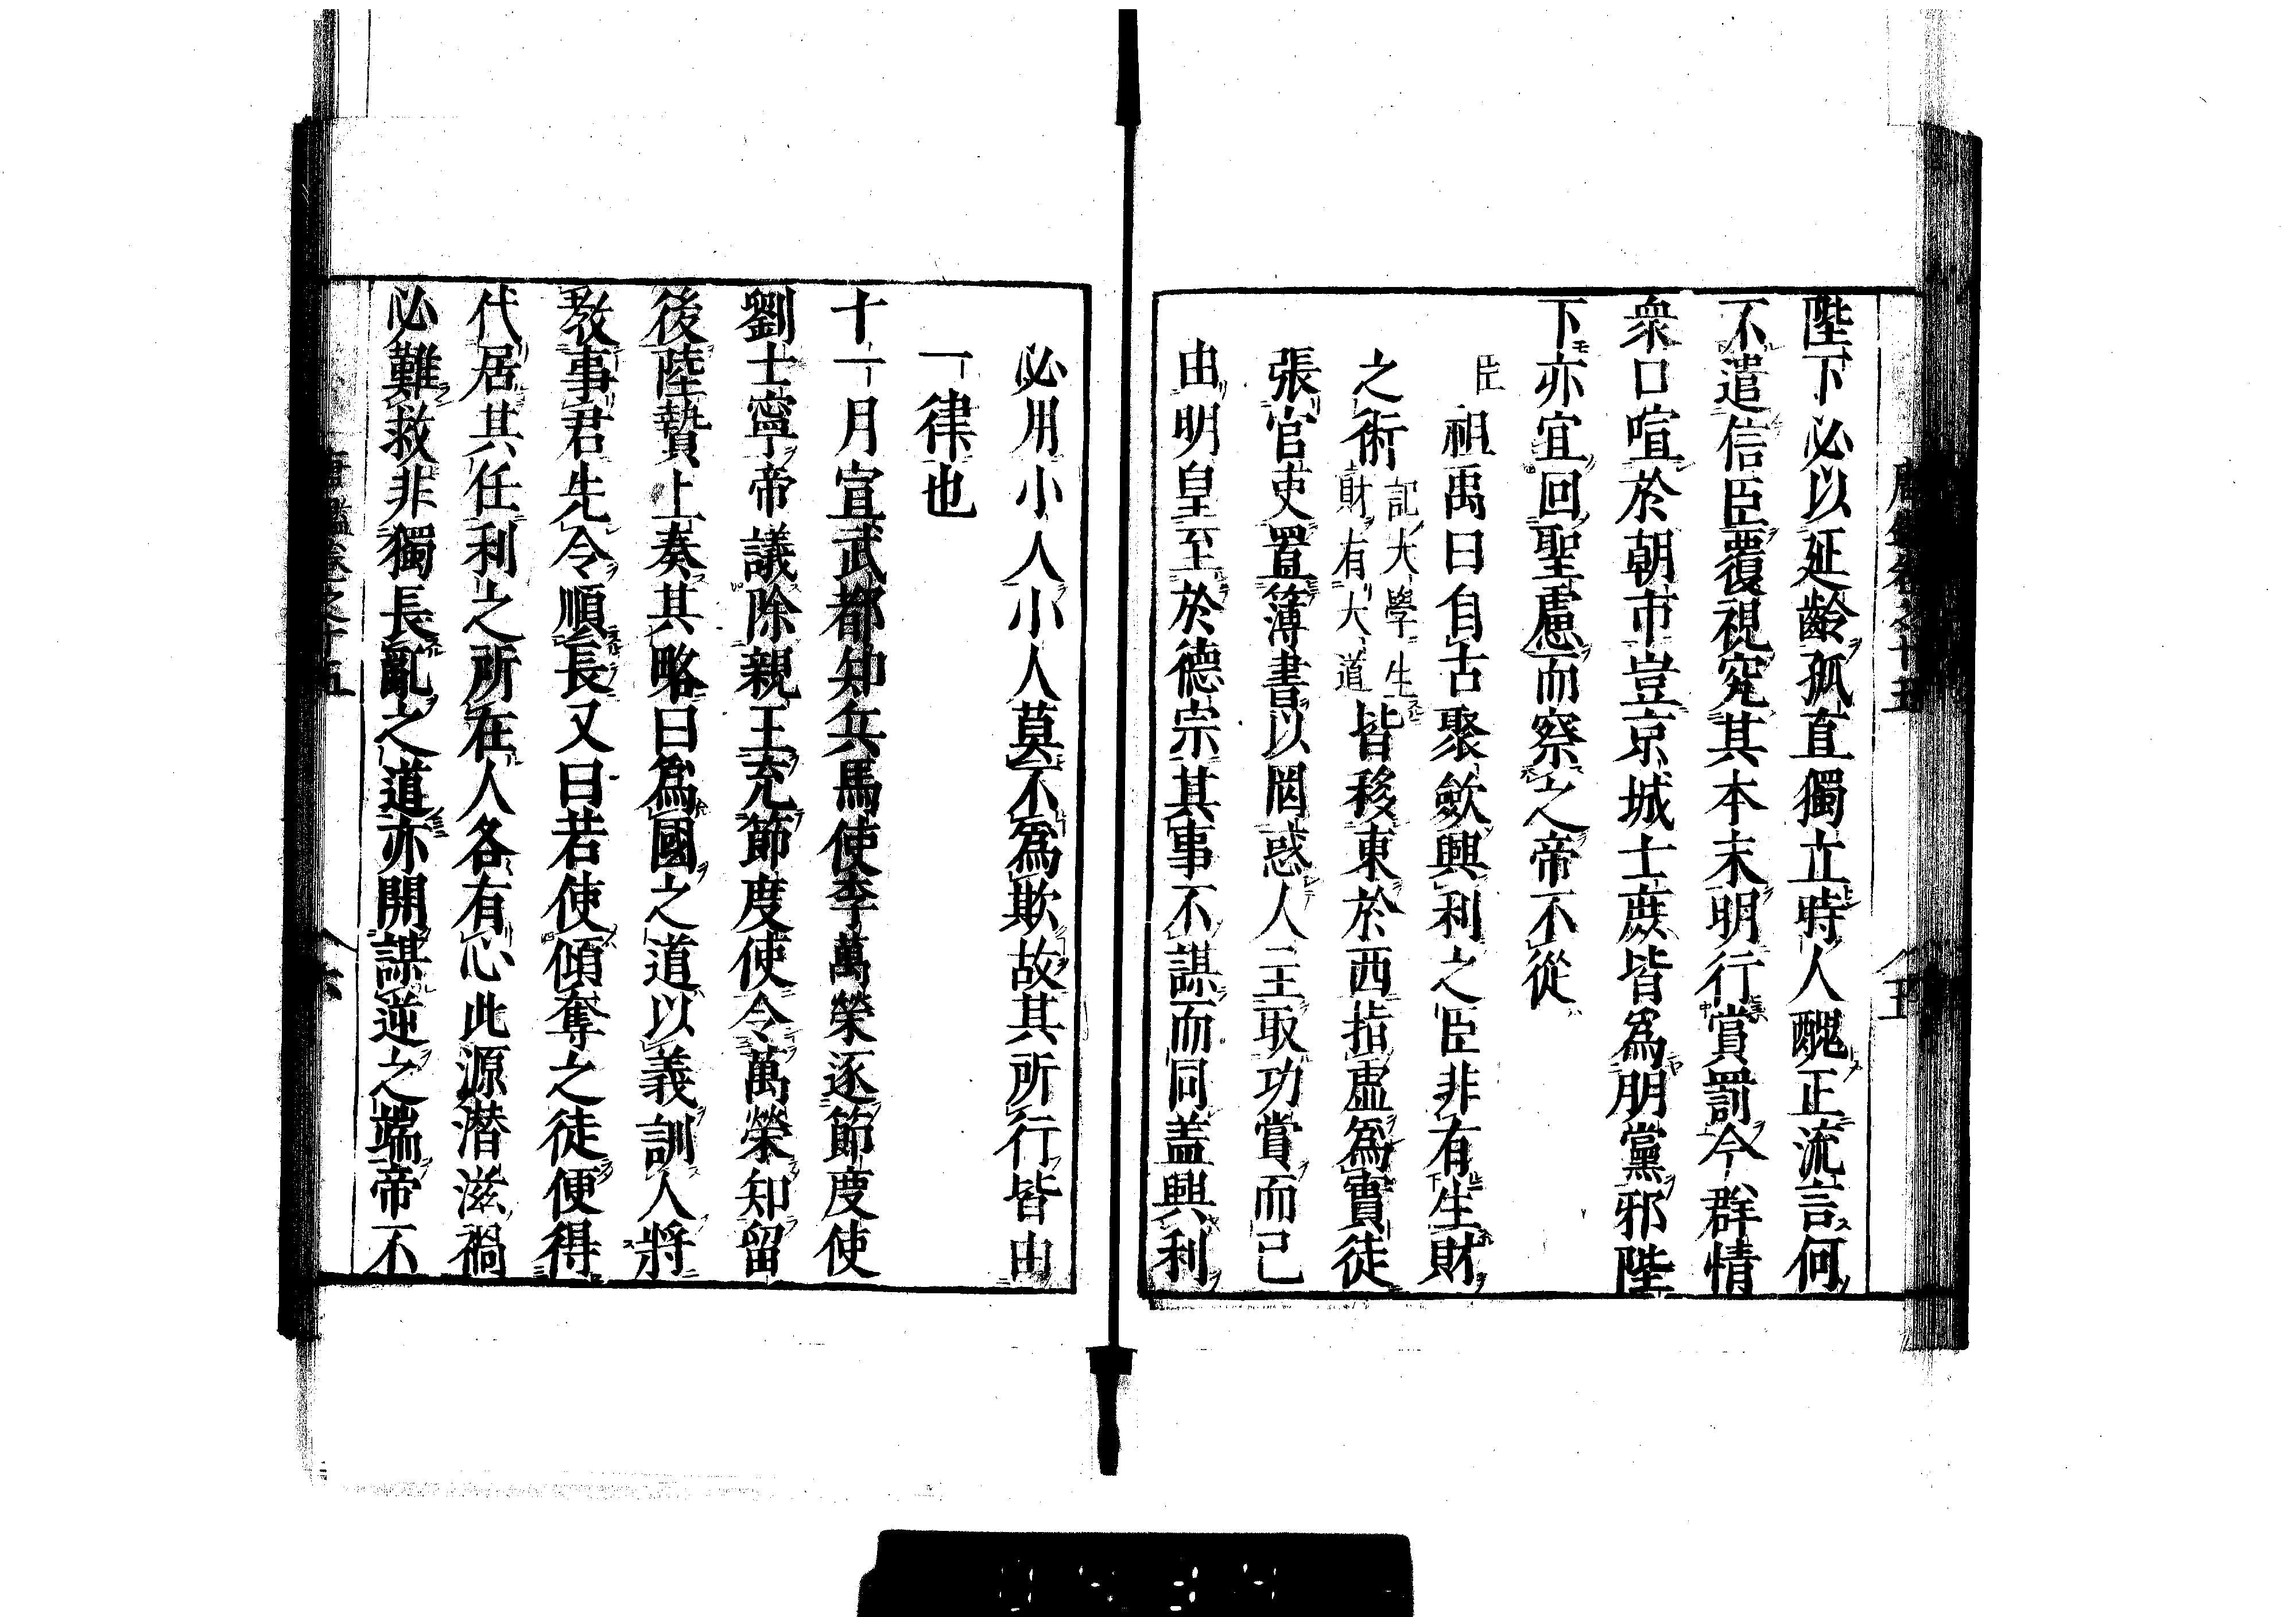 陛下必以延齡孤直獨立時人醜正流言何
不遣信臣覆視究其本末明行賞罰今群情
衆口喧於朝市豈京城士庶皆爲朋黨邪陛
下亦宜回聖慮而察之帝不從
臣祖禹曰自古聚斂興利之臣非有生財
之術記大學生財有大道皆移東於西指虛爲實徒
張官吏置簿書以罔惑人主取功賞而已
由明皇至於德宗其事不謀而同盖興利
必用小人小人莫不爲欺故其所行皆由
一律也
十一月宣武都知兵馬使李萬榮逐節度使
劉士寧帝議除親王充節度使令萬榮知留
後陸贄上奏其略曰爲國之道以義訓人將
敎事君先令順長又曰若使傾奪之徒便得
代居其任利之所在人各有心此源潛滋禍
必難救非獨長亂之道亦開謀逆之端帝不